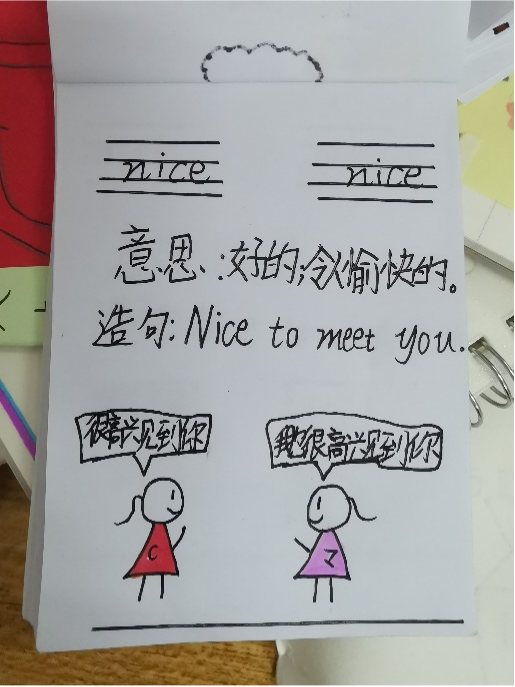 nice nice
意思:好的,令人愉快的。
造句:Nice to meet you.
很高兴见到你
我也很高兴见到你
C